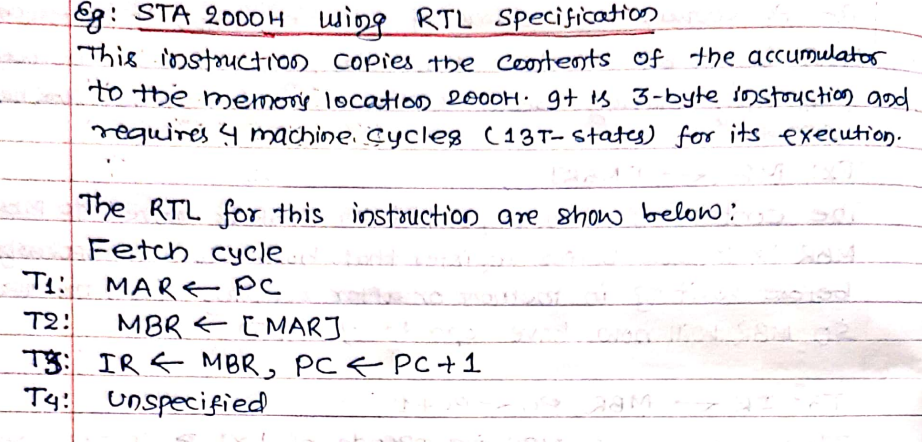 Eg: STA 2000H using RTL Specification
This instruction copies the contents of the accumulator
to the memory location 2000H. It is 3-byte instruction and
requires 4 machine cycles (13T-states) for its execution.
The RTL for this instruction are show below:
Fetch cycle
T1: MAR ← PC
T2: MBR ← [MAR]
T3: IR ← MBR, PC ← PC+1
T4: Unspecified